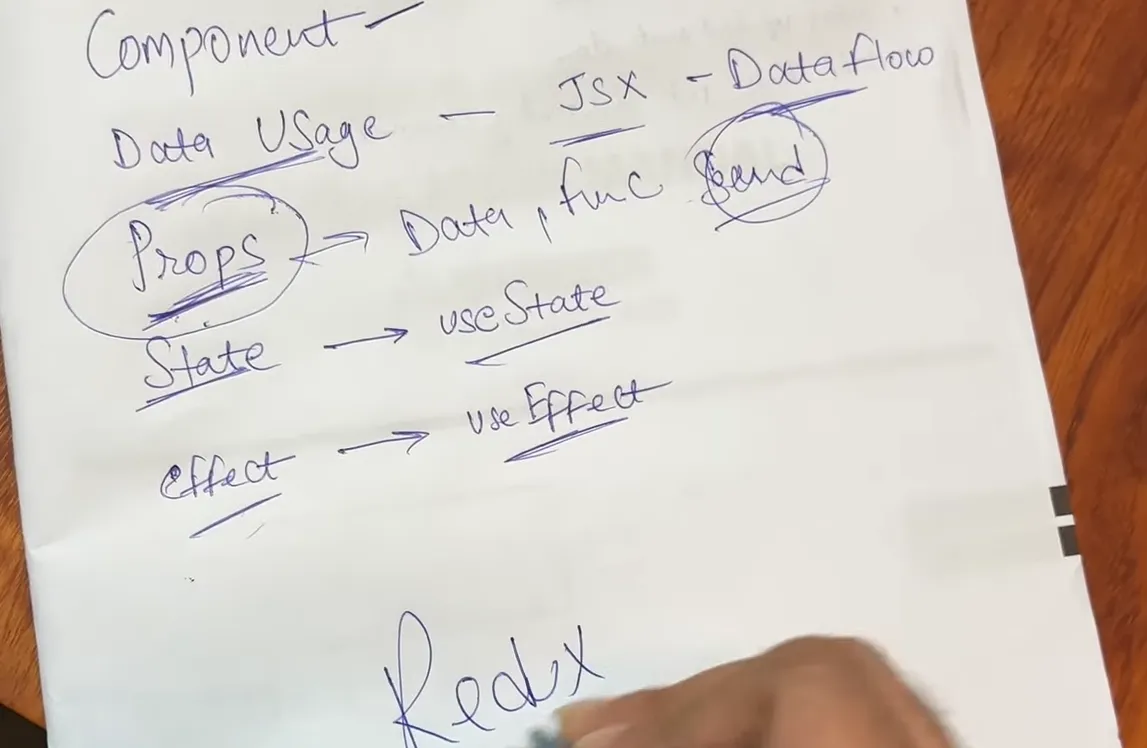 Component -
Data Usage - JSX - Data flow
Props → Data, func Send
State → useState
effect → useEffect
Redux